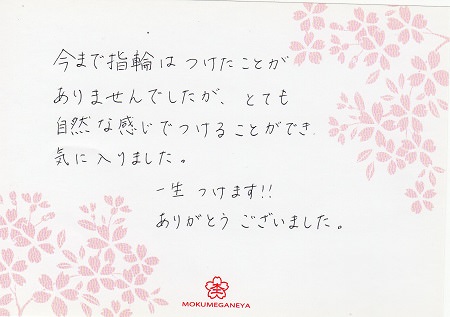 今まで指輪はつけたことが
ありませんでしたが、とても
自然な感じでつけることができ
気に入りました。
一生 つけます!!
ありがとうございました。
MOKUMEGANEYA